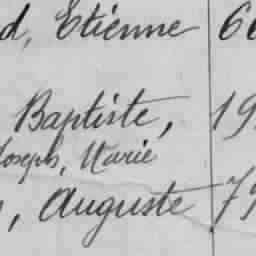 d, Etienne 66
Baptiste, 19
Joseph, Marie
, Auguste 79